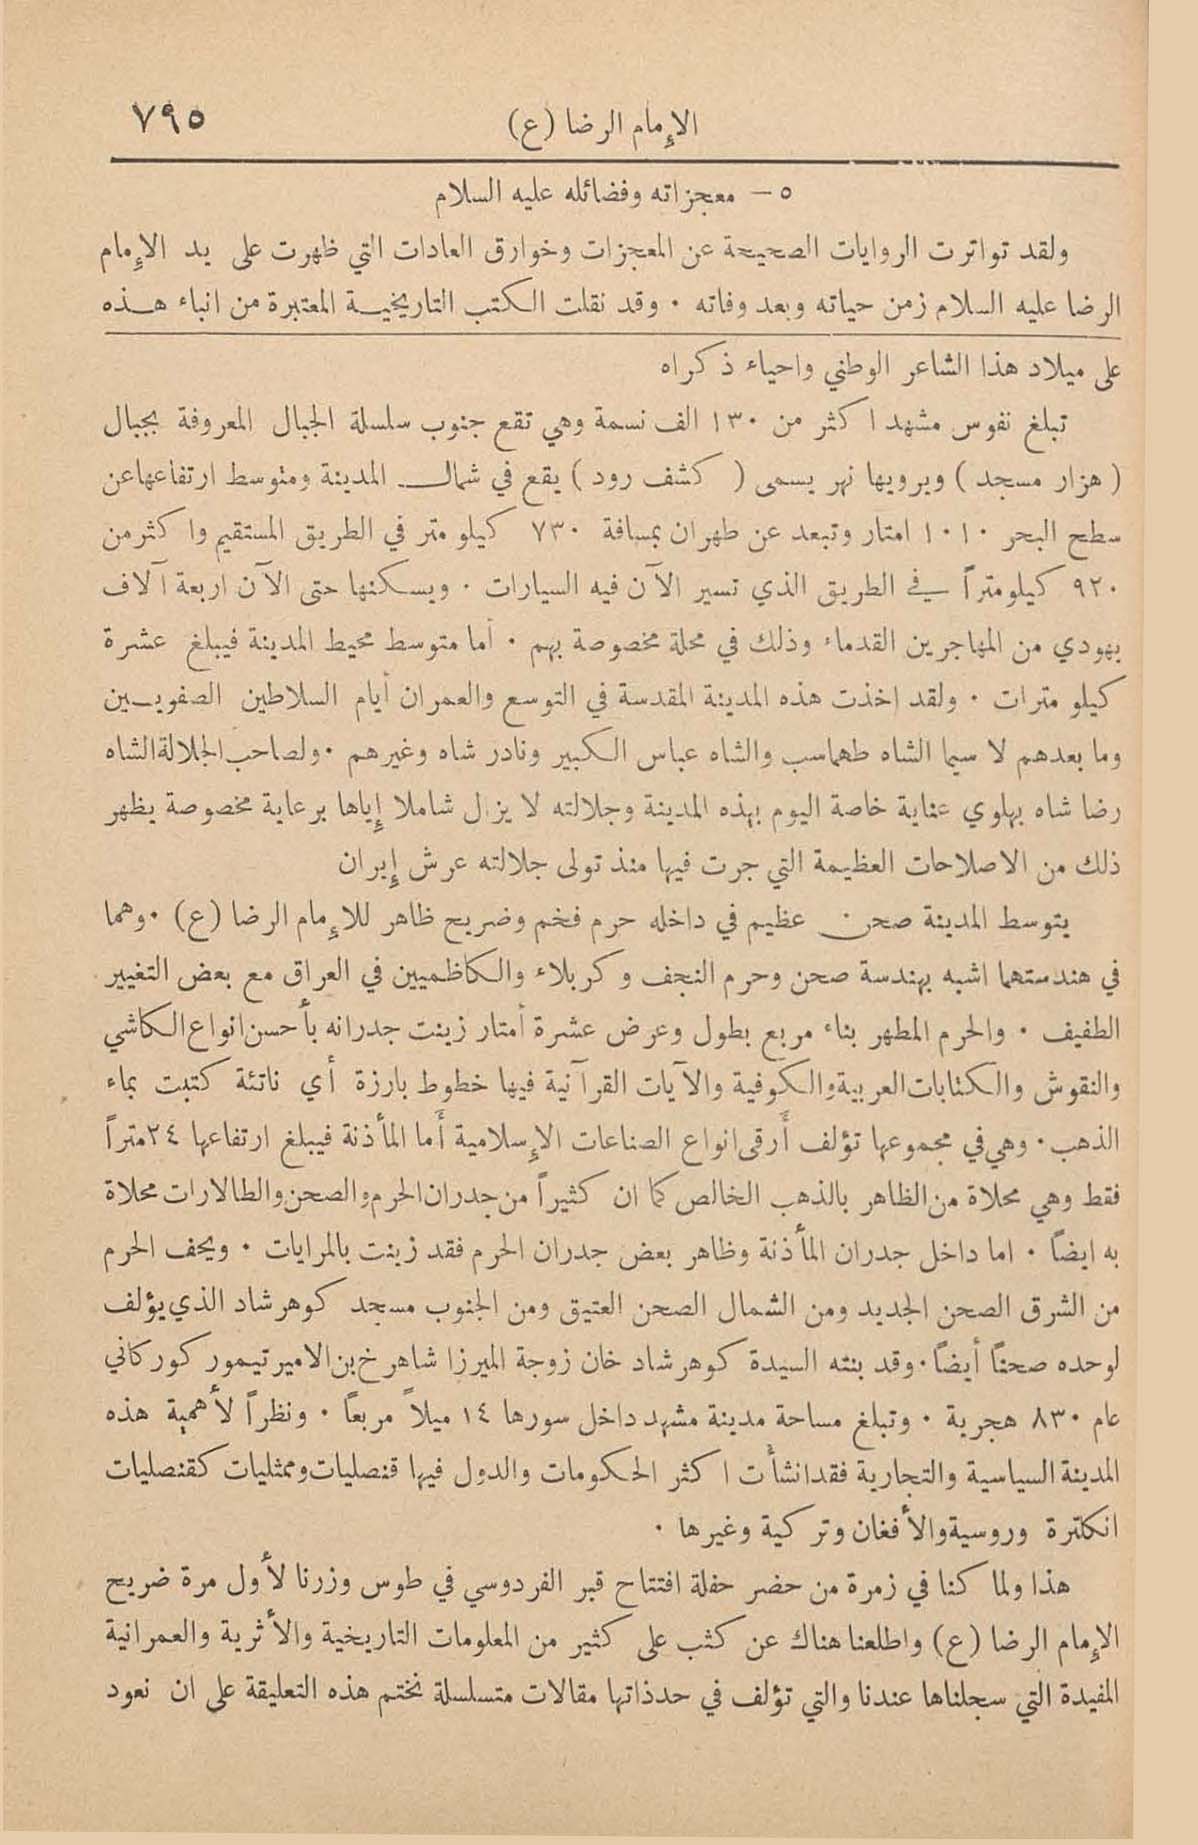 الإمام الرضا (ع) ٧٩٥
٥ – معجزاته وفضائله عليه السلام
ولقد تواترت الروايات الصحيحة عن المعجزات وخوارق العادات التي ظهرت على يد الإمام
الرضا عليه السلام زمن حياته وبعد وفاته · وقد نقلت الكتب التاريخية المعتبرة من انباء هذه
على ميلاد هذا الشاعر الوطني واحياء ذكراه
تبلغ نفوس مشهد اكثر من ١٣٠ الف نسمة وهي تقع جنوب سلسلة الجبال المعروفة بجبال
( هزار مسجد ) ويرويها نهر يسمى ( كشف رود ) يقع في شمال المدينة ومتوسط ارتفاعها عن
سطح البحر ١٠١٠ امتار وتبعد عن طهران بمسافة ٧٣٠ كيلو متر في الطريق المستقيم واكثر من
٩٢٠ كيلو متراً في الطريق الذي تسير الآن فيه السيارات · ويسكنها حتى الآن اربعة آلاف
يهودي من المهاجرين القدماء وذلك في محلة مخصوصة بهم · أما متوسط محيط المدينة فيبلغ عشرة
كيلو مترات · ولقد اخذت هذه المدينة المقدسة في التوسع والعمران أيام السلاطين الصفويين
وما بعدهم لا سيما الشاه طهماسب والشاه عباس الكبير ونادر شاه وغيرهم · ولصاحب الجلالة الشاه
رضا شاه بهلوي عناية خاصة اليوم بهذه المدينة وجلالته لا يزال شاملا إياها برعاية مخصوصة يظهر
ذلك من الاصلاحات العظيمة التي جرت فيها منذ تولى جلالته عرش إيران
يتوسط المدينة صحن عظيم في داخله حرم فخم وضريح ظاهر للإمام الرضا (ع) · وهما
في هندستهما اشبه بهندسة صحن وحرم النجف وكربلاء والكاظميين في العراق مع بعض التغيير
الطفيف · والحرم المطهر بناء مربع بطول وعرض عشرة أمتار زينت جدرانه بأحسن انواع الكاشي
والنقوش والكتابات العربية والكوفية والآيات القرآنية فيها خطوط بارزة أي ناتئة كتبت بماء
الذهب · وهي في مجموعها تؤلف أرقى انواع الصناعات الإسلامية أما المأذنة فيبلغ ارتفاعها ٢٤ متراً
فقط وهي محلاة من الظاهر بالذهب الخالص كما ان كثيراً من جدران الحرم والصحن والطالارات محلاة
به ايضاً · اما داخل جدران المأذنة وظاهر بعض جدران الحرم فقد زينت بالمرايات · ويحف الحرم
من الشرق الصحن الجديد ومن الشمال الصحن العتيق ومن الجنوب مسجد كوهرشاد الذي يؤلف
لوحده صحناً أيضاً · وقد بنته السيدة كوهرشاد خان زوجة الميرزا شاهرخ بن الامير تيمور كوركاني
عام ٨٣٠ هجرية · وتبلغ مساحة مدينة مشهد داخل سورها ١٤ ميلاً مربعاً · ونظراً لأهمية هذه
المدينة السياسية والتجارية فقد انشأت اكثر الحكومات والدول فيها قنصليات وممثليات كقنصليات
انكلترة وروسية والأفغان وتركية وغيرها ·
هذا ولما كنا في زمرة من حضر حفلة افتتاح قبر الفردوسي في طوس وزرنا لأول مرة ضريح
الإمام الرضا (ع) واطلعنا هناك عن كثب على كثير من المعلومات التاريخية والأثرية والعمرانية
المفيدة التي سجلناها عندنا والتي تؤلف في حدذاتها مقالات متسلسلة نختم هذه التعليقة على ان نعود